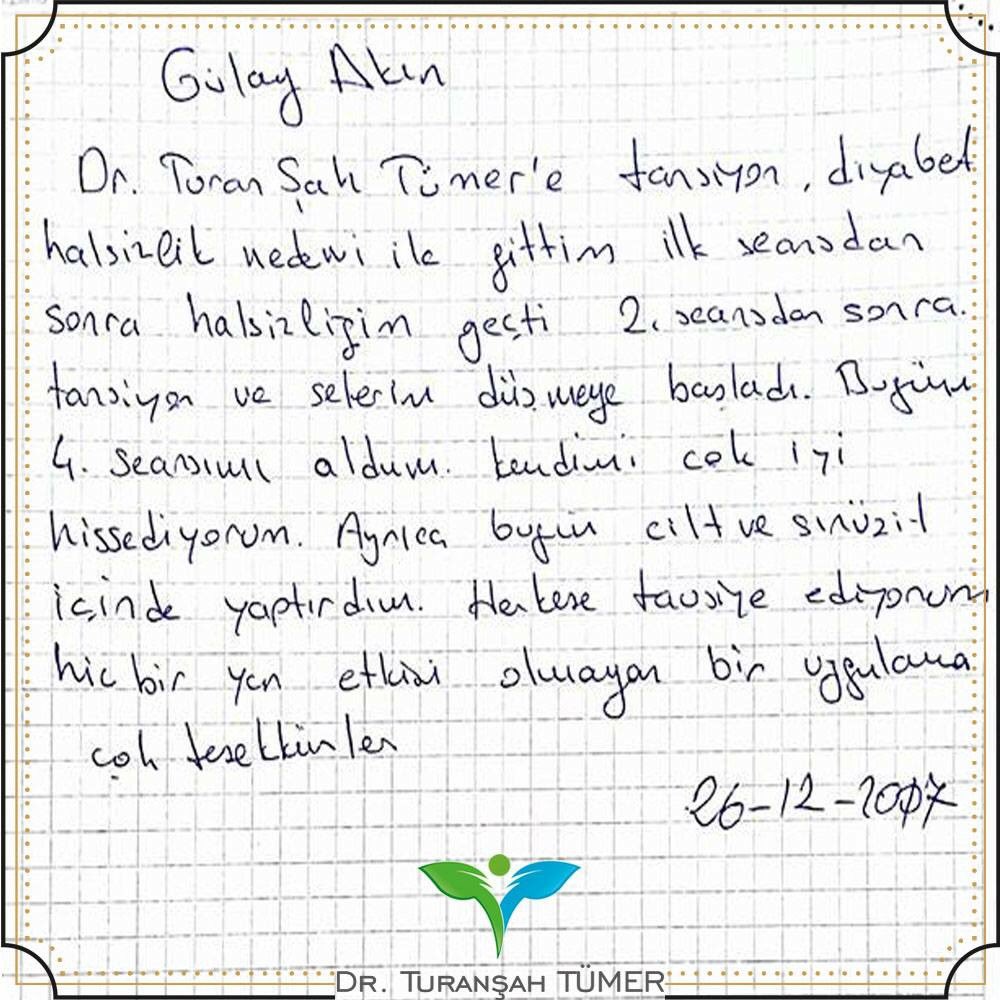 Gülay Akın
Dr. Turan Şah Tümer'e tansiyon, diyabet
halsizlik nedeni ile gittim ilk seansdan
sonra halsizliğim geçti 2. seansdan sonra.
tansiyon ve şekerim düşmeye başladı. Bugün
4. seansımı aldım. kendimi çok iyi
hissediyorum. Ayrıca bugün cilt ve sinüzit
içinde yaptırdım. Herkese tavsiye ediyorum
hiç bir yan etkisi olmayan bir uygulama
çok teşekkürler
26-12-2017
DR. TURANŞAH TÜMER